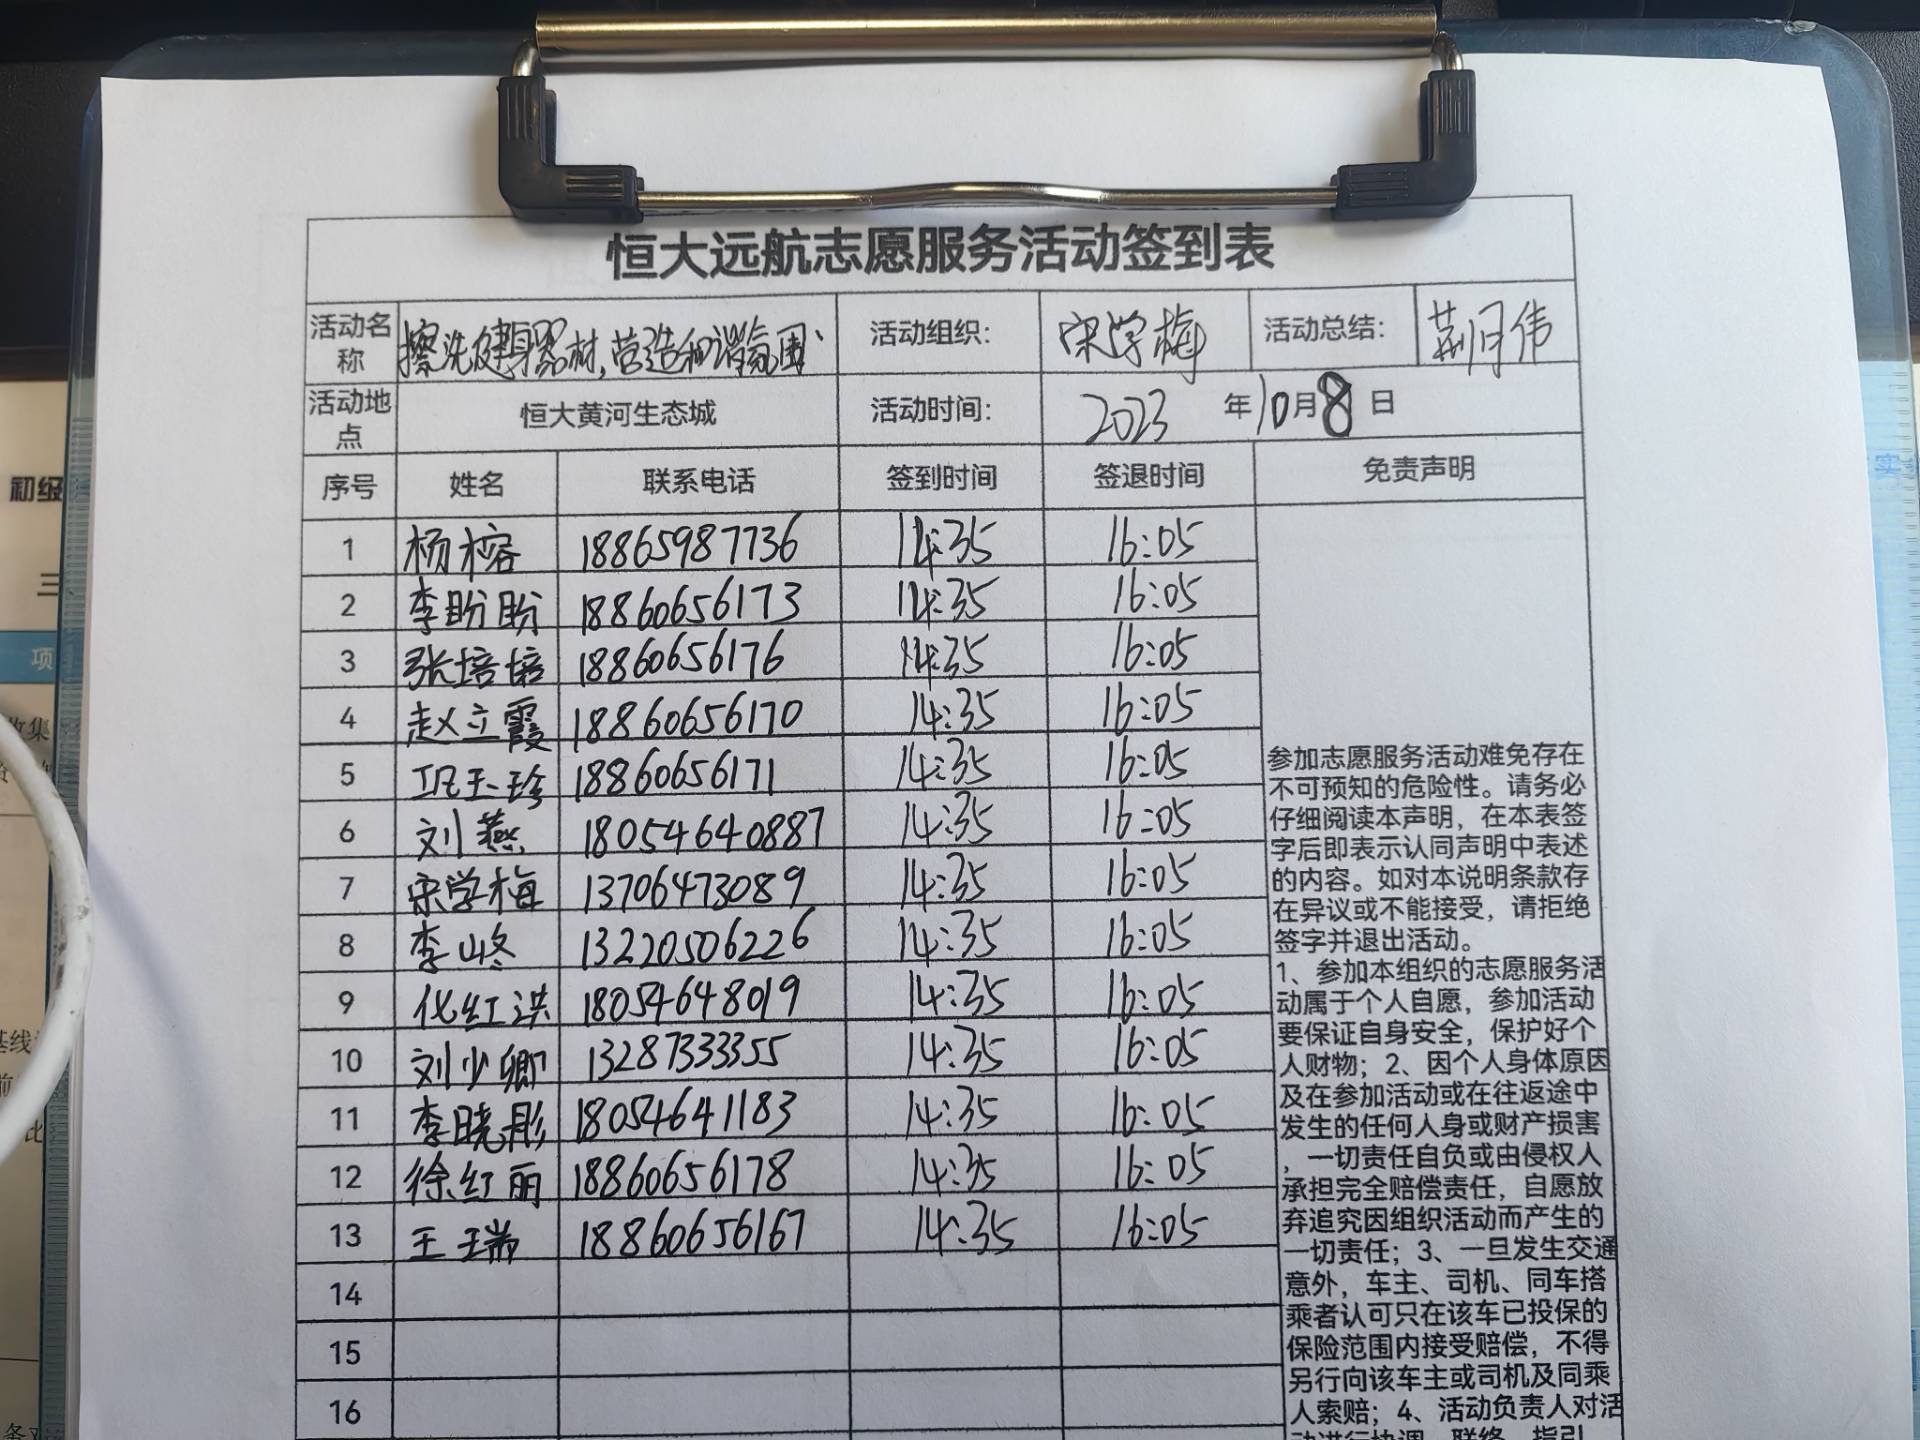 恒大远航志愿服务活动签到表
活动名称 擦洗健身器材,营造和谐氛围、 活动组织: 宋学梅 活动总结: 荆月伟
活动地点 恒大黄河生态城 活动时间: 2023 年10月8日
序号 姓名 联系电话 签到时间 签退时间 免责声明
1 杨榕 18865987736 14:35 16:05
2 李盼盼 18860656173 14:35 16:05
3 张培培 18860656176 14:35 16:05
4 赵立霞 18860656170 14:35 16:05
5 巩玉珍 18860656171 14:35 16:05
6 刘燕 18054640887 14:35 16:05
7 宋学梅 13706473089 14:35 16:05
8 李峂 13220506226 14:35 16:05
9 化红洪 18054648019 14:35 16:05
10 刘少卿 13287333355 14:35 16:05
11 李晓彤 18054641183 14:35 16:05
12 徐红丽 18860656178 14:35 16:05
13 王瑞 18860656167 14:35 16:05
14
15
16
参加志愿服务活动难免存在
不可预知的危险性。请务必
仔细阅读本声明，在本表签
字后即表示认同声明中表述
的内容。如对本说明条款存
在异议或不能接受，请拒绝
签字并退出活动。
1、参加本组织的志愿服务活
动属于个人自愿，参加活动
要保证自身安全，保护好个
人财物；2、因个人身体原因
及在参加活动或在往返途中
发生的任何人身或财产损害
，一切责任自负或由侵权人
承担完全赔偿责任，自愿放
弃追究因组织活动而产生的
一切责任；3、一旦发生交通
意外，车主、司机、同车搭
乘者认可只在该车已投保的
保险范围内接受赔偿，不得
另行向该车主或司机及同乘
人索赔；4、活动负责人对活
动进行协调、联络、指引
初级
三
项
收集
基线
前
比
条
实